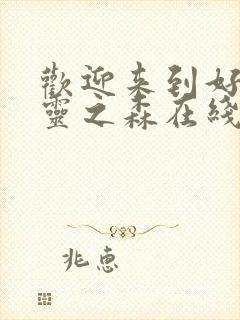 歡迎来到好
靈之森在綫
兆惠